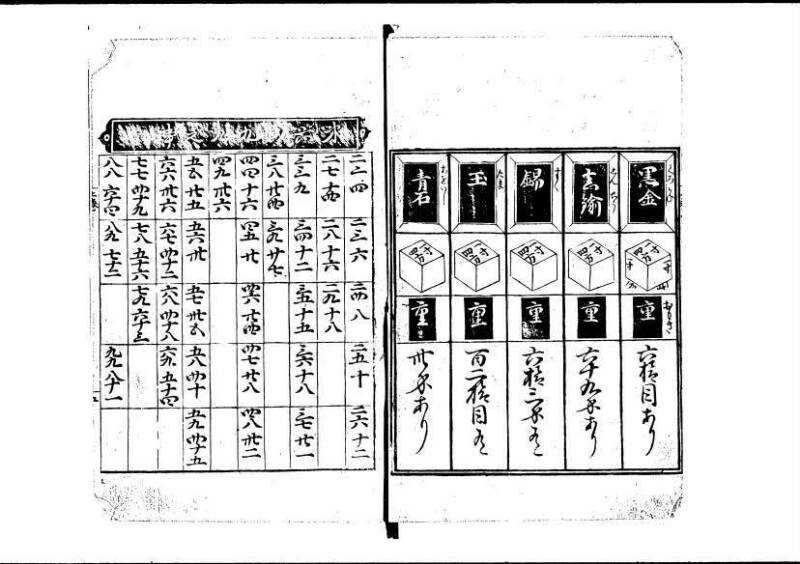 黒金
寸
四方
重
六拾目あり
寸
四方
重
六十九匁あり
錫
寸
四方
重
六拾三匁有
玉
寸
四方
重
百二拾目有
青石
寸
四方
重さ
卅匁あり
二二四
二三六
二四八
二五十
二六十二
二七十四
二八十六
二九十八
三三九
三四十二
三五十五
三六十八
三七廿一
三八廿四
三九廿七
四四十六
四五廿
四六廿四
四七廿八
四八卅二
四九卅六
五五廿五
五六卅
五七卅五
五八四十
五九四十五
六六卅六
六七四十二
六八四十八
六九五十四
七七四十九
七八五十六
七九六十三
八八六十四
八九七十二
九九八十一